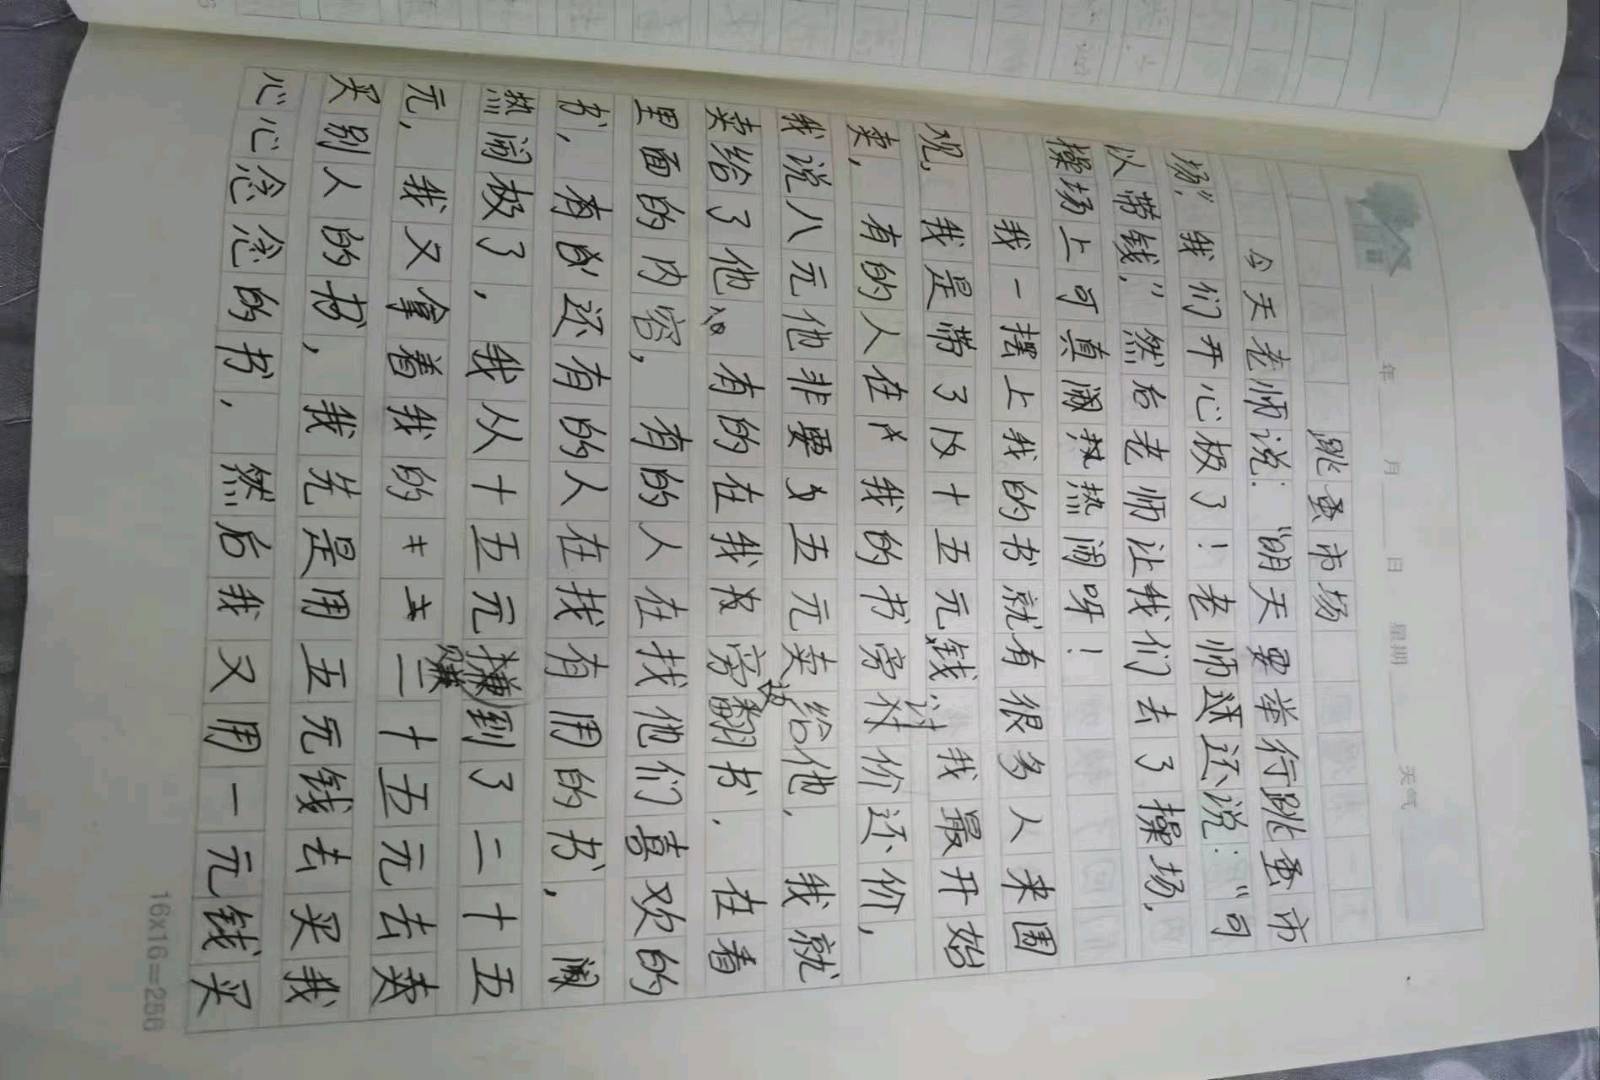 年 月 日 星期 天气
跳蚤市场
今天老师说：“明天要举行跳蚤市
场，”我们开心极了！老师还说：“可
以带钱，”然后老师让我们去了操场，
操场上可真热闹呀！
我一摆上我的书就有很多人来围
观，我是带了十五元钱，我最开始
卖，有的人在我的书旁讨价还价，
我说八元他非要五元卖给他，我就
卖给了他。有的在我旁边翻书，在看
里面的内容，有的人在找他们喜欢的
书，有还有的人在找有用的书，闹
热闹极了，我从十五元赚到了二十五
元，我又拿着我的二十五元去卖
买别人的书，我先是用五元钱去买我
心心念念的书，然后我又用一元钱买
16×16=256